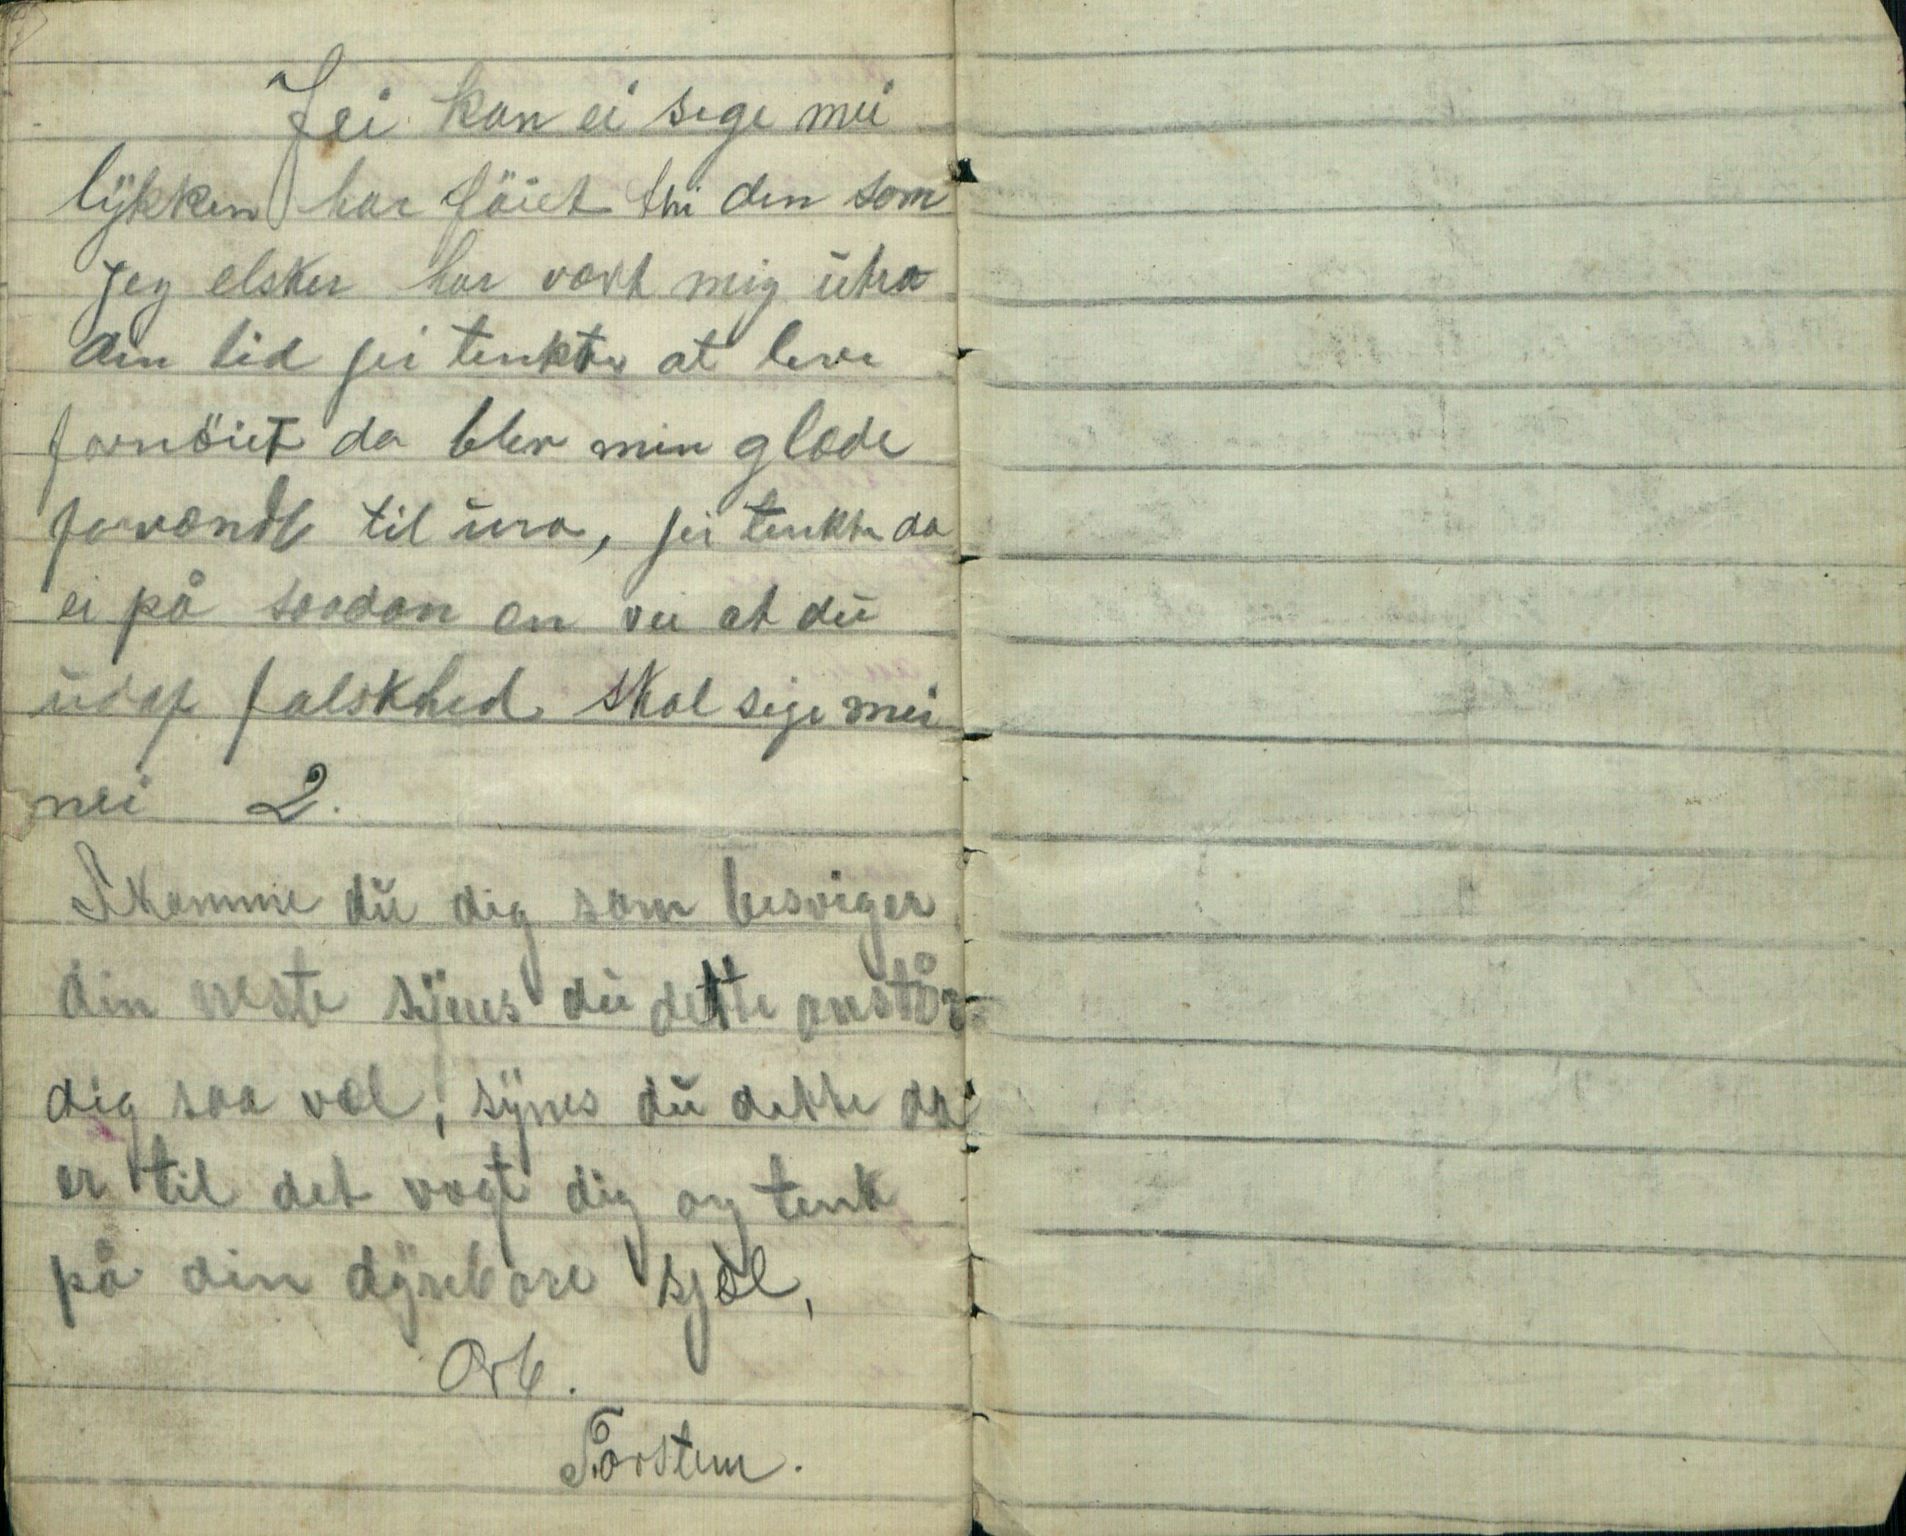 Jei kan ei sige mei
lÿkken har föiet thi den som
jeg elsker har vært mig ūtro
den tid jei tenkte at leve
fornöiet da blev min glæde
forvændt til ūro, jei tenkte da
ei på saadan en vei at dū
ūdaf falskhed skal sige mei
nei 2.
Skamme dū dig som besviger
din neste sÿnes dū dette anstår
dig saa vel, sÿnes dū dette da
er til det vogt dig og tenk
på din dÿrebare sjæl,
Torstein.